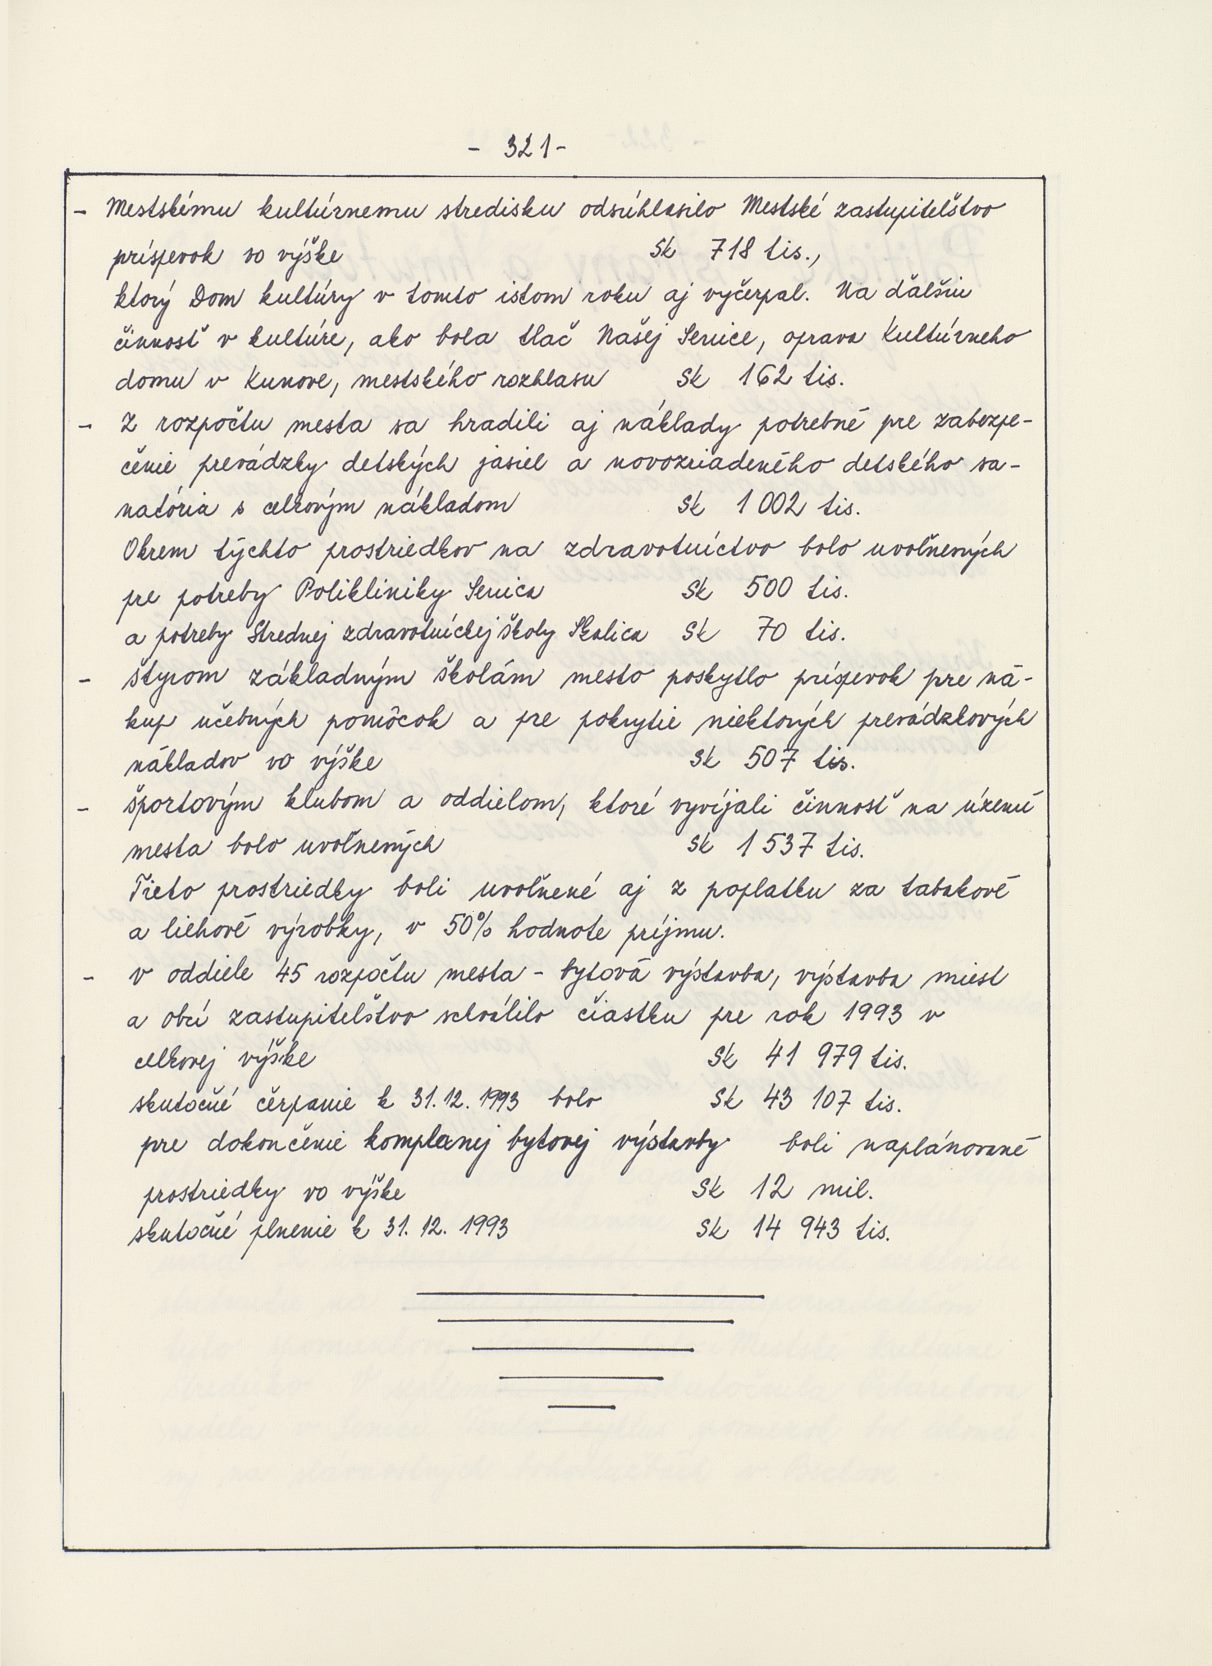 - 321 -
- Mestskému kultúrnemu stredisku odsúhlasilo Mestské zastupiteľstvo
príspevok vo výške Sk 718 tis.,
ktorý Dom kultúry v tomto istom roku aj vyčerpal. Na ďalšiu
činnosť v kultúre, ako bola tlač Našej Senice, oprava Kultúrneho
domu v Kunove, mestského rozhlasu Sk 162 tis.
- Z rozpočtu mesta sa hradili aj náklady potrebné pre zabezpe-
čenie prevádzky detských jasiel a novozriadeného detského sa-
natória s celkovým nákladom Sk 1 002 tis.
Okrem týchto prostriedkov na zdravotníctvo bolo uvoľnených
pre potreby Polikliniky Senica Sk 500 tis.
a potreby Strednej zdravotníckej školy Skalica Sk 70 tis.
- štyrom základným školám mesto poskytlo príspevok pre ná-
kup učebných pomôcok a pre pokrytie niektorých prevádzkových
nákladov vo výške Sk 507 tis.
- športovým klubom a oddielom, ktoré vyvíjali činnosť na území
mesta bolo uvoľnených Sk 1 537 tis.
Tieto prostriedky boli uvoľnené aj z poplatku za tabakové
a liehové výrobky, v 50% hodnote príjmu.
- v oddiele 45 rozpočtu mesta - bytová výstavba, výstavba miest
a obcí zastupiteľstvo schválilo čiastku pre rok 1993 v
celkovej výške Sk 41 979 tis.
skutočné čerpanie k 31.12.1993 bolo Sk 43 107 tis.
pre dokončenie komplexnej bytovej výstavby boli naplánované
prostriedky vo výške Sk 12 mil.
skutočné plnenie k 31.12.1993 Sk 14 943 tis.